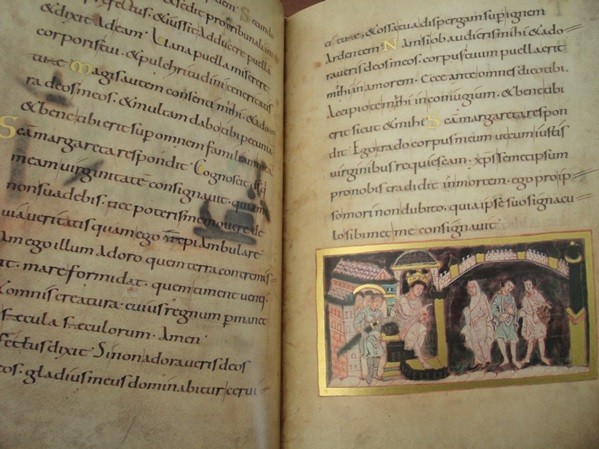 Secunda
edit pro tribunali
& dixit ad eam. Uana puella miserere
corporis tui. & pulchritudini teneritatis
tuae. Magis autem consenti mihi. & ado
ra deos meos. & multam dabo tibi pecunia
& bene tibi erit sup omnem familiam mea
Scā margareta respondit. Cognoscat
meam uirginitatē consignauit. quam
non suadebis. nec poteris me mouere de
uia ueritatis quam ego Ambulare
am ego illum Adoro quem terra contremis
cit. mare formidat. quem timent uenti.
& omnis creatura. cuius regnum pmanet
saecula saeculorum. Amen
fectus dixit. Si non adoraueris deos
eos. gladius meus dominabitur cerui
ci tuae. & ossa tua dispergam sup ignem
Ardentem. Nam si ob audieris mihi. & ado
raueris deos meos. corpus tuum pulla erit
mihi in amorem. Ecce ante omnes dico tibi.
Accipio te mihi in coniugium. & bene tibi
erit sicut & mihi. Scā margareta respon
dit. Ego trado corpus meum ut cum iustis
uirginibus requiescam. xps semetipsum
pro nobis tradidit in mortem. ego pro ip
so mori non dubito. quia ipse suo signacu
lo sibi me consignauit.